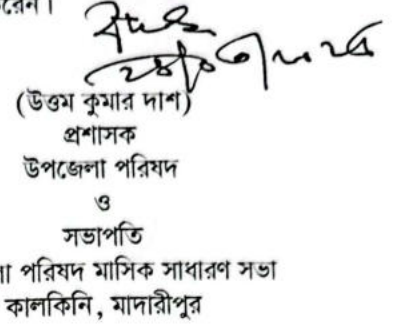 রেন।
(উত্তম কুমার দাশ)
প্রশাসক
উপজেলা পরিষদ
ও
সভাপতি
া পরিষদ মাসিক সাধারণ সভা
কালকিনি, মাদারীপুর